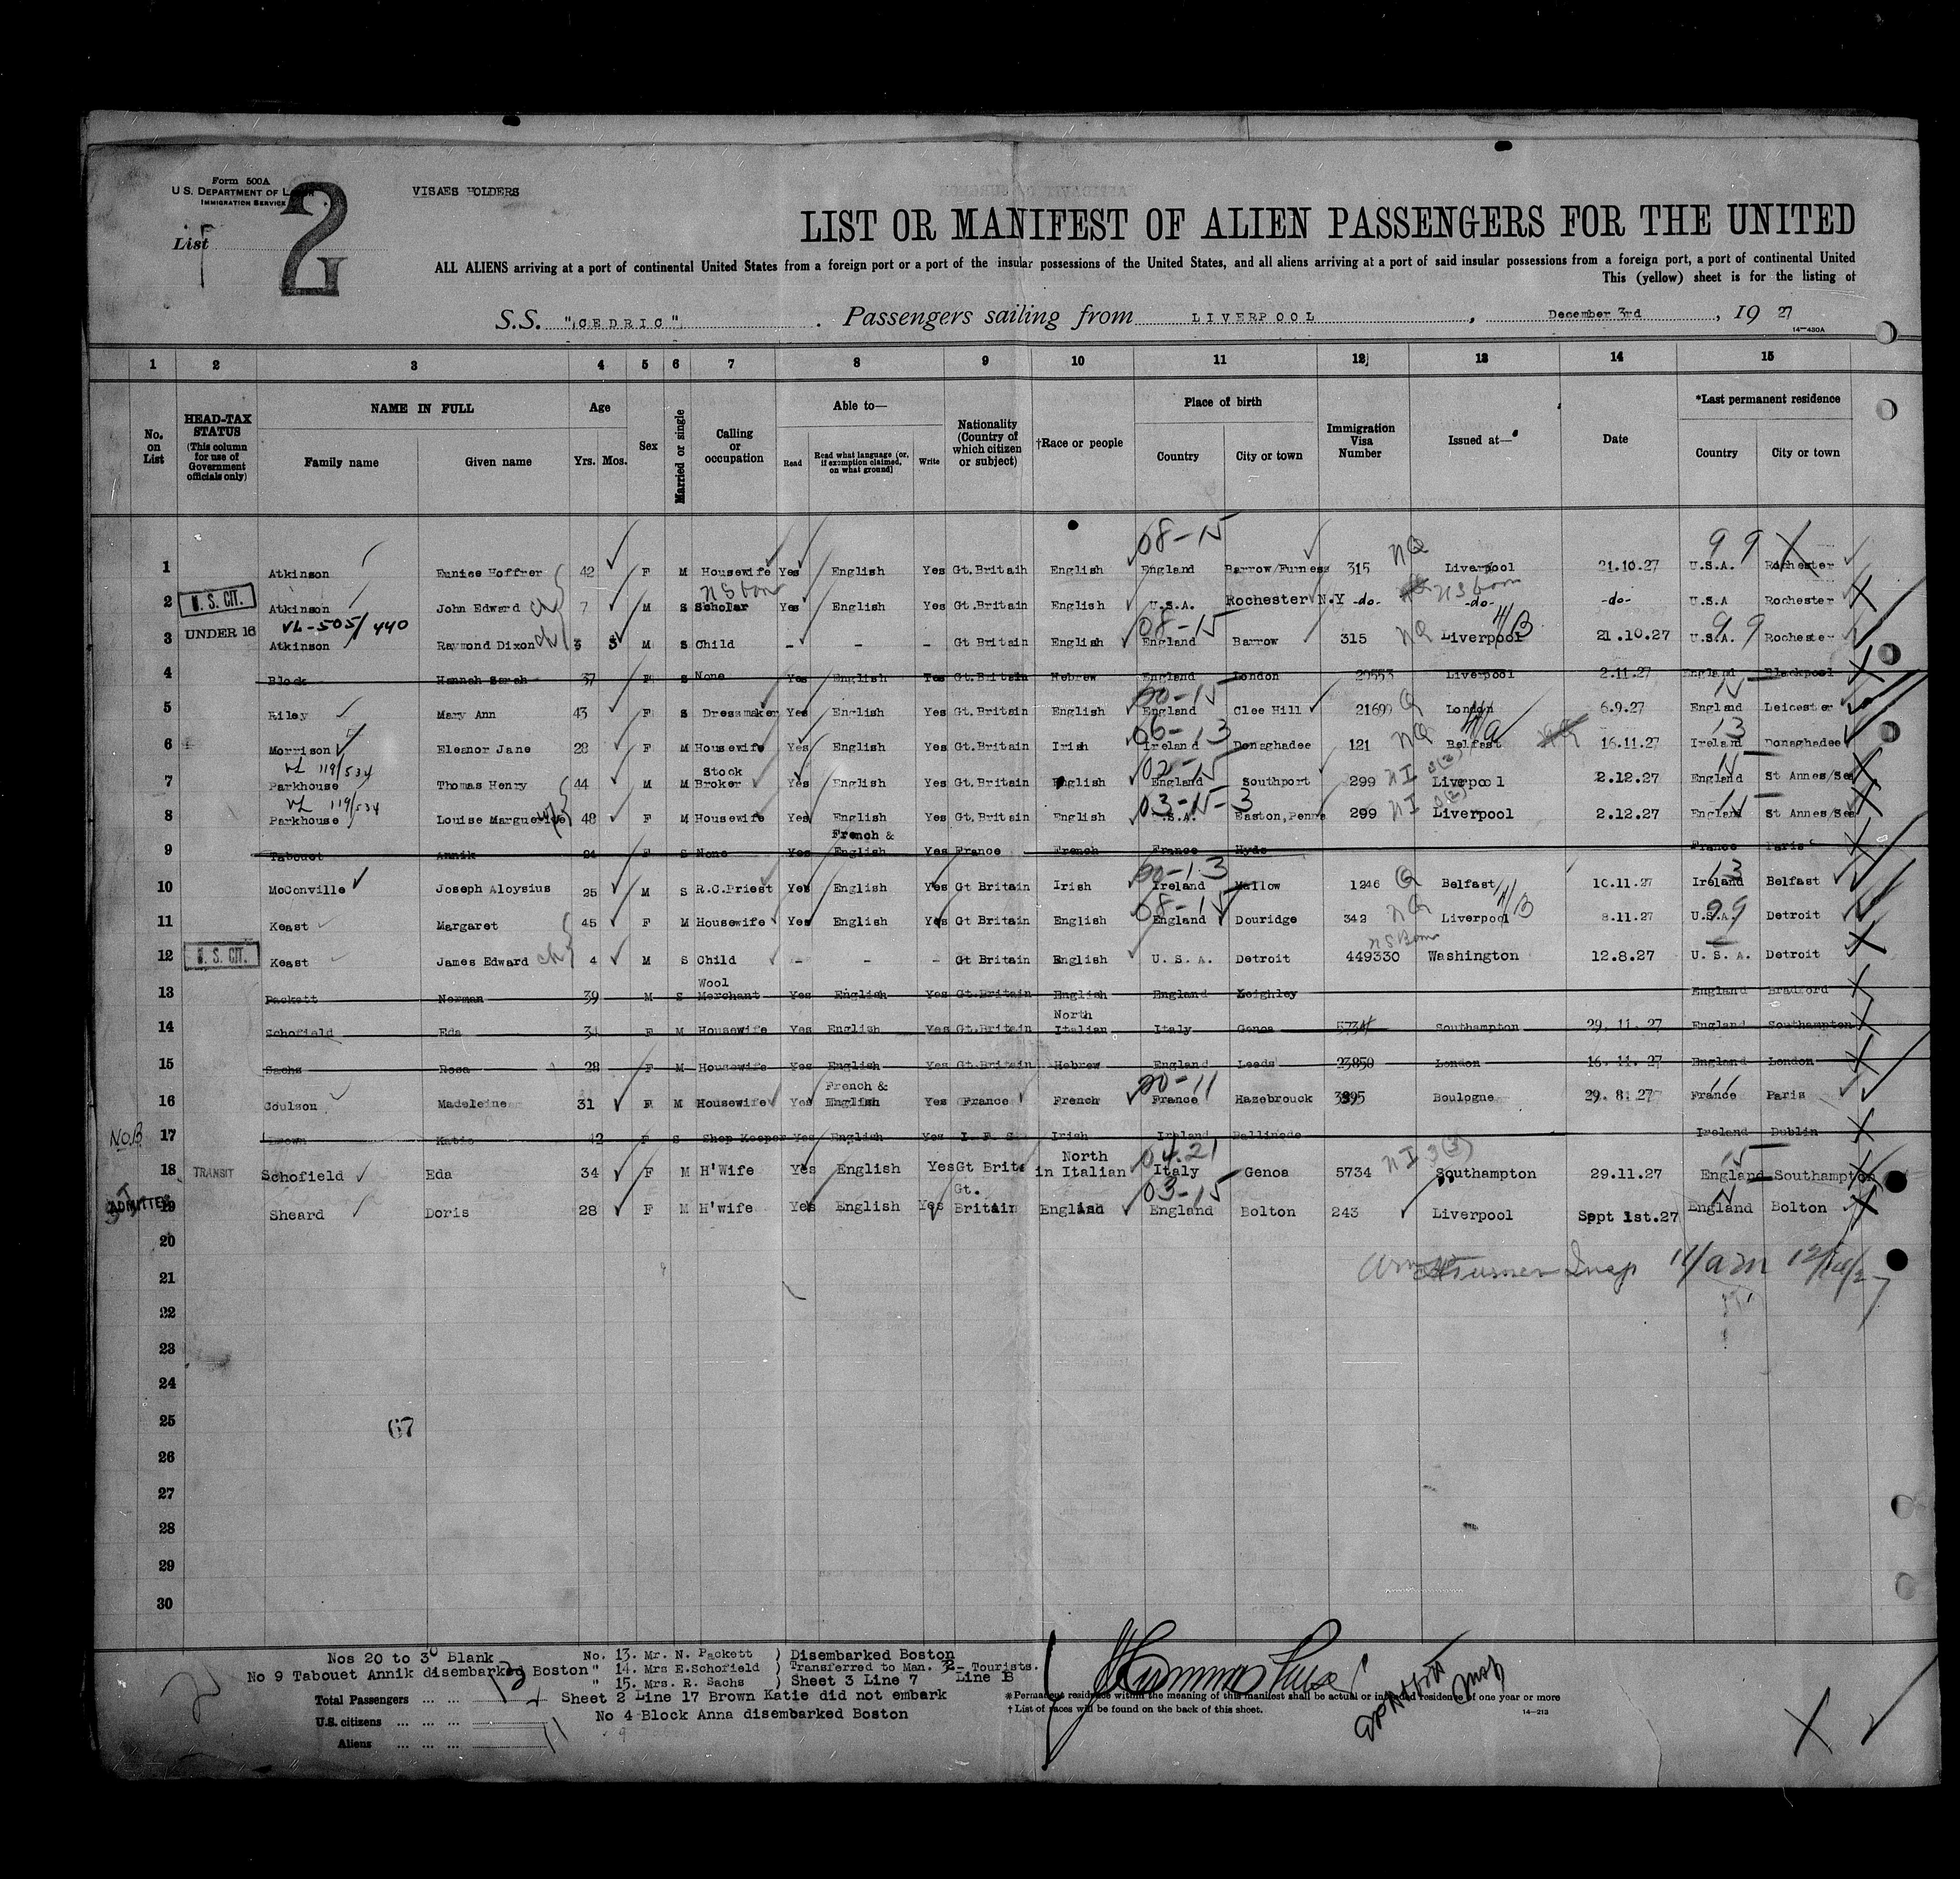 Form 500A
U.S. DEPARTMENT OF LABOR
IMMIGRATION SERVICE
VISAES HOLDERS
List
2
LIST OR MANIFEST OF ALIEN PASSENGERS FOR THE UNITED
ALL ALIENS arriving at a port of continental United States from a foreign port or a port of the insular possessions of the United States, and all aliens arriving at a port of said insular possessions from a foreign port, a port of continental United
This (yellow) sheet is for the listing of
S.S. "CEDRIC". Passengers sailing from LIVERPOOL, December 3rd, 19 27
14—430A
1 2 3 4 5 6 7 8 9 10 11 12 13 14 15
No. on List
HEAD-TAX STATUS (This column for use of Government officials only)
NAME IN FULL
Family name Given name
Age
Yrs. Mos.
Sex
Married or single
Calling or occupation
Able to—
Read Read what language (or, if exemption claimed, on what ground) Write
Nationality (Country of which citizen or subject)
†Race or people
Place of birth
Country City or town
Immigration Visa Number
Issued at—
Date
*Last permanent residence
Country City or town
08-15 NQ 99
1 Atkinson Eunice Hoffner 42 F M Housewife Yes English Yes Gt.Britain English England Barrow/Furness 315 Liverpool 21.10.27 U.S.A. Rochester
N S born
2 U.S. CIT. Atkinson John Edward ch 7 M S Scholar Yes English Yes Gt.Britain English U.S.A. Rochester N.Y -do- -do- -do- U.S.A Rochester
VL-505/440 08-15 NQ 11/B 99
3 UNDER 16 Atkinson Raymond Dixon ch 3 3 M S Child - - - Gt Britain English England Barrow 315 Liverpool 21.10.27 U.S.A. Rochester
4 Block Hannah Sarah 37 F S None Yes English Yes Gt.Britain Hebrew England London 29553 Liverpool 2.11.27 England Blackpool
00-15 Q 15
5 Riley Mary Ann 43 F S Dressmaker Yes English Yes Gt.Britain English England Clee Hill 21699 London 6.9.27 England Leicester
06-13 NQ 13
6 Morrison Eleanor Jane 28 F M Housewife Yes English Yes Gt.Britain Irish Ireland Donaghadee 121 Belfast 16.11.27 Ireland Donaghadee
VL 119/534 02-15 NI 3(2) 15
7 Parkhouse Thomas Henry 44 M M Stock Broker Yes English Yes Gt.Britain English England Southport 299 Liverpool 2.12.27 England St Annes/Sea
VL 119/534 03-15-3 NI
8 Parkhouse Louise Marguerite 48 F M Housewife Yes English Yes Gt.Britain English U.S.A. Easton,Penna 299 Liverpool 2.12.27 England St Annes/Sea
9 Tabouet Annik 24 F S None Yes French & English Yes France French France Hyde France Paris
00-13 Q 13
10 McConville Joseph Aloysius 25 M S R.C.Priest Yes English Yes Gt Britain Irish Ireland Mallow 1246 Belfast 10.11.27 Ireland Belfast
08-15 NQ 11/B 99
11 Keast Margaret 45 F M Housewife Yes English Yes Gt Britain English England Douridge 342 Liverpool 8.11.27 U.S.A. Detroit
N S Born
12 U.S. CIT. Keast James Edward ch 4 M S Child - - - Gt Britain English U. S. A. Detroit 449330 Washington 12.8.27 U. S. A. Detroit
13 Packett Norman 39 M S Wool Merchant Yes English Yes Gt.Britain English England Keighley England Bradford
14 Schofield Eda 34 F M Housewife Yes English Yes Gt.Britain North Italian Italy Genoa 5734 Southampton 29.11.27 England Southampton
15 Sachs Rosa 28 F M Housewife Yes English Yes Gt.Britain Hebrew England Leeds 23850 London 16.11.27 England London
00-11 11
16 Coulson Madeleine 31 F M Housewife Yes French & English Yes France French France Hazebrouck 3995 Boulogne 29.8.27 France Paris
No.B
17 Brown Katie 42 F S Shop Keeper Yes English Yes I.F.S. Irish Ireland Ballinode Ireland Dublin
04.21 NI 3(3) 15
18 TRANSIT Schofield Eda 34 F M H'Wife Yes English Yes Gt Brit North in Italian Italy Genoa 5734 Southampton 29.11.27 England Southampton
03-15 15
19 ADMITTED Sheard Doris 28 F M H'wife Yes English Yes Gt. Britain England England Bolton 243 Liverpool Sept 1st.27 England Bolton
20
21
22
23
24
25 67
26
27
28
29
30
Nos 20 to 30 Blank
No 9 Tabouet Annik disembarked Boston
No. 13. Mr. N. Packett ) Disembarked Boston
" 14. Mrs E.Schofield ) Transferred to Man. 32- Tourists.
" 15. Mrs. R. Sachs ) Sheet 3 Line 7 Line B
Sheet 2 Line 17 Brown Katie did not embark
No 4 Block Anna disembarked Boston
Total Passengers
U.S. citizens
Aliens 11
* Permanent residence within the meaning of this manifest shall be actual or intended residence of one year or more
† List of races will be found on the back of this sheet.
14—213